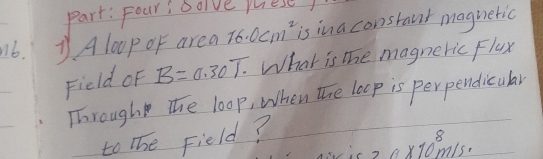 Part: Four: Solve these
nb. 1) A loop of area 76.0cm² is in a constant magnetic
Field of B=0.30T. What is the magnetic Flux
Through the loop, When the loop is perpendicular
to the Field?
is 10⁸m/s.